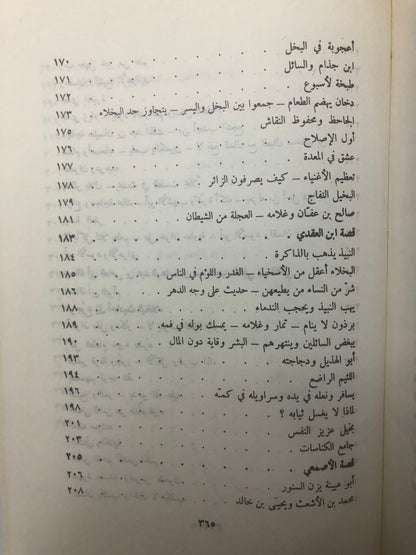 أعجوبة في البخل . . . . . ١٧٠
ابن جذام والسائل . . . . . ١٧١
طبخة لأسبوع . . . . . ١٧٢
دخان يهضم الطعام – جمعوا بين البخل واليسر – يتجاوز حد البخلاء ١٧٣
الجاحظ ومحفوظ النقاش . . . . . ١٧٥
أول الإصلاح . . . . .
عشق في المعدة . . . . . ١٧٧
تعظيم الأغنياء – كيف يصرفون الزائر . . . ١٧٨
البخيل النفاج . . . . . ١٧٩
صالح بن عفّان وغلامه – العجلة من الشيطان . . ١٨١
قصة ابن العقدي . . . . . ١٨٣
النبيذ يذهب بالذاكرة . . . . .
البخلاء أعقل من الأسخياء – الغدر واللؤم في الناس . ١٨٥
شرّ من النساء من يطيعهن – حديث على وجه الدهر . ١٨٦
يهب النبيذ ويحجب الندماء . . . . . ١٨٨
برذون لا ينام – تمار وغلامه – يمسك بوله في فمه . . ١٨٩
يبغض السائلين وينتهرهم – البشر وقاية دون المال . . ١٩٠
أبو الهذيل ودجاجته . . . . . ١٩٣
اللئيم الراضع . . . . . ١٩٤
يسافر ونعله في يده وسراويله في كمّه . . . ١٩٦
لماذا لا يغسل ثيابه ؟ . . . . . ١٩٨
بخيل عزيز النفس . . . . . ٢٠١
جامع الكناسات . . . . . ٢٠٣
قصة الأصمعي . . . . . ٢٠٥
أبو عيينة يزن السنور . . . . . ٢٠٦
محمد بن الأشعث ويحيى بن خالد . . . . . ٢٠٨
٣٦٥